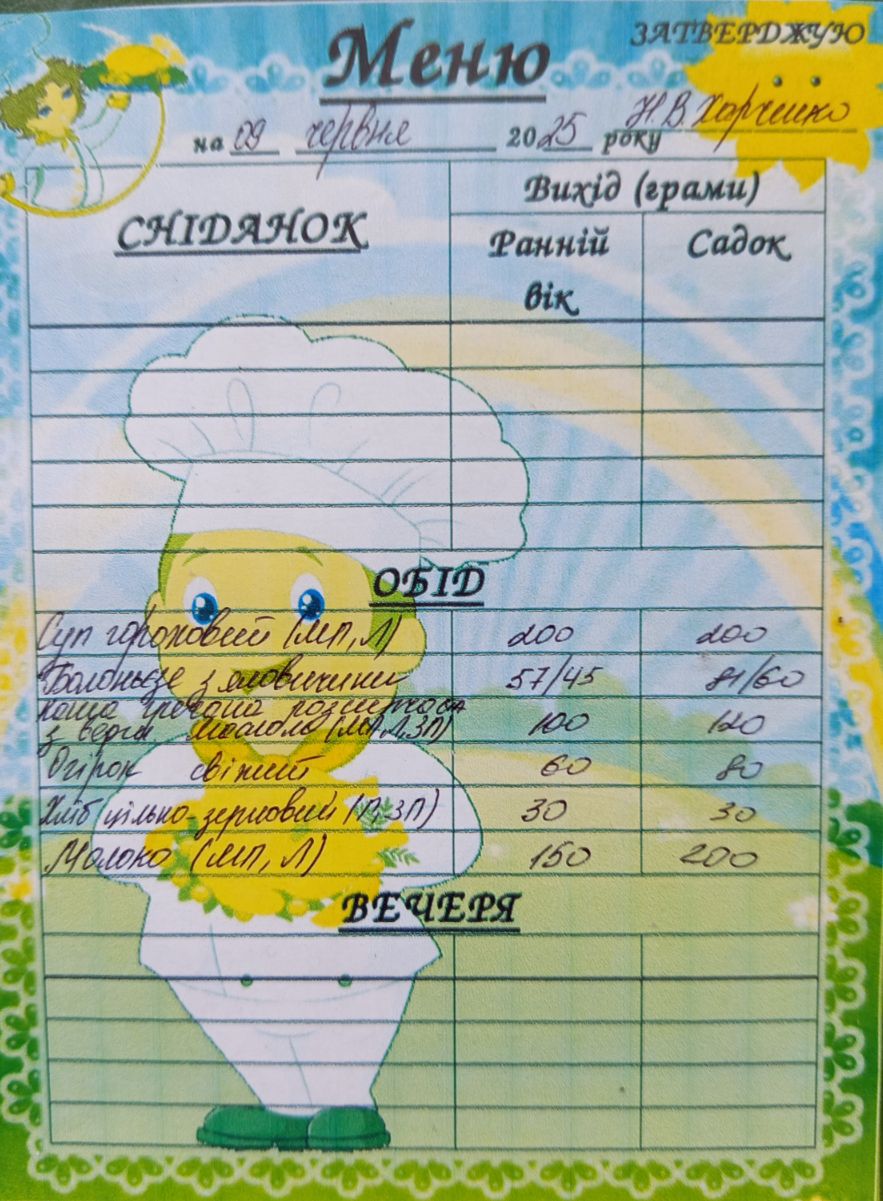 Меню
ЗАТВЕРДЖУЮ
на 09 червня 2025 року Н.В. Харченко
СНІДАНОК
Вихід (грами)
Ранній вік
Садок
ОБІД
Суп гороховий (МП, Л) 200 200
Болоньєзе з яловичини 57/45 81/60
каша гречана розсипчаста
з верш маслом (МП, Л, ЗП) 100 120
Огірок свіжий 60 80
Хліб цільно-зерновий (Л, ЗП) 30 30
Молоко (МП, Л) 150 200
ВЕЧЕРЯ